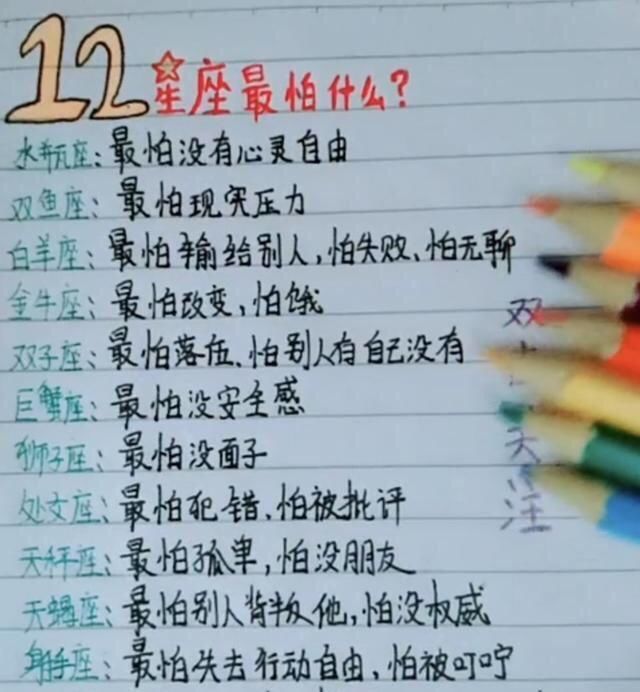 12星座最怕什么?
水瓶座:最怕没有心灵自由
双鱼座:最怕现实压力
白羊座:最怕输给别人,怕失败、怕无聊
金牛座:最怕改变,怕饿
双子座:最怕落伍、怕别人有自己没有
巨蟹座:最怕没安全感
狮子座:最怕没面子
处女座:最怕犯错、怕被批评
天秤座:最怕孤单,怕没朋友
天蝎座:最怕别人背叛他,怕没权威
射手座:最怕失去行动自由、怕被叮咛
双
关
注